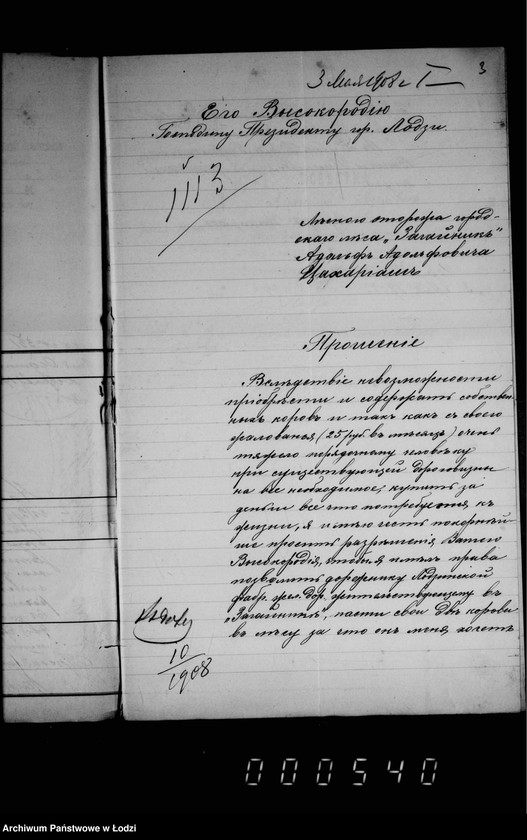 3
3 Мая 1908 г. I
Его Высокородію
Господину Президенту гор. Лодзи
1113
Лѣсного сторожа город-
скаго лѣса „Загайникъ"
Адольфъ Адольфовича
Цахаріашъ
Прошеніе
Вслѣдствіе невозможности
пріобрѣсти и содержать собствен-
ныхъ коровъ и такъ какъ съ своего
жалованья (25 руб. въ мѣсяцъ) очень
тяжело порядочному человѣку
при существующей дороговизнѣ
на все необходимое, купить за
деньги все что потребуется къ
жизни, я имѣю честь покорнѣй-
ше просить разрѣшенія Вашего
Высокородія, чтобы я имѣлъ права
позволить дорожнику Лодзинской
фабр. жел. дор. жительствующему въ
„Загайникѣ", пасти свои двѣ коровы
въ лѣсу за что онъ меня хочетъ
10
1908
000540
Archiwum Państwowe w Łodzi